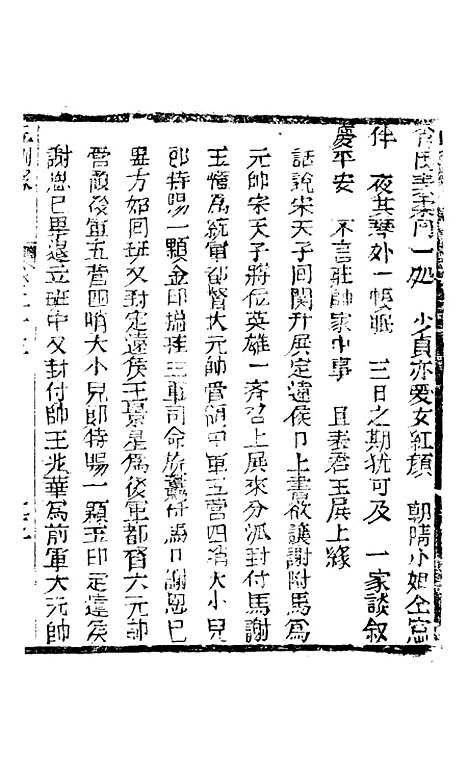 一处　少貞亦愛女紅顔　朝晴小姐仝窓
伴　夜其琴外一帳眠　三日之期犹可及　一家談叙
慶平安　不言駐帥家中事　且表君王展上緣
話說宋天子回開升展定遠侯口上書欲讓謝附馬爲
元帥宋天子將位英雄一斉召上展來分派封付馬謝
玉爲統軍都督大元帥管領中軍五營四哨大小兒
郎特賜一顆金印掌三軍司命謝恩已
畢方如回班又封定遠矦王景星爲後軍都督六元帥
管領後軍五营四哨大小兒郎特賜一顆玉印定遠矦
謝恩已畢還立班中又封付帥王兆華爲前軍大元帥